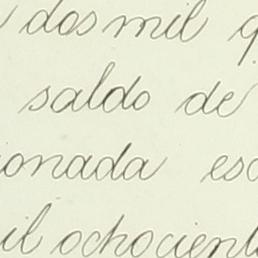 dos mil
saldo de
ionada es
il ochocient